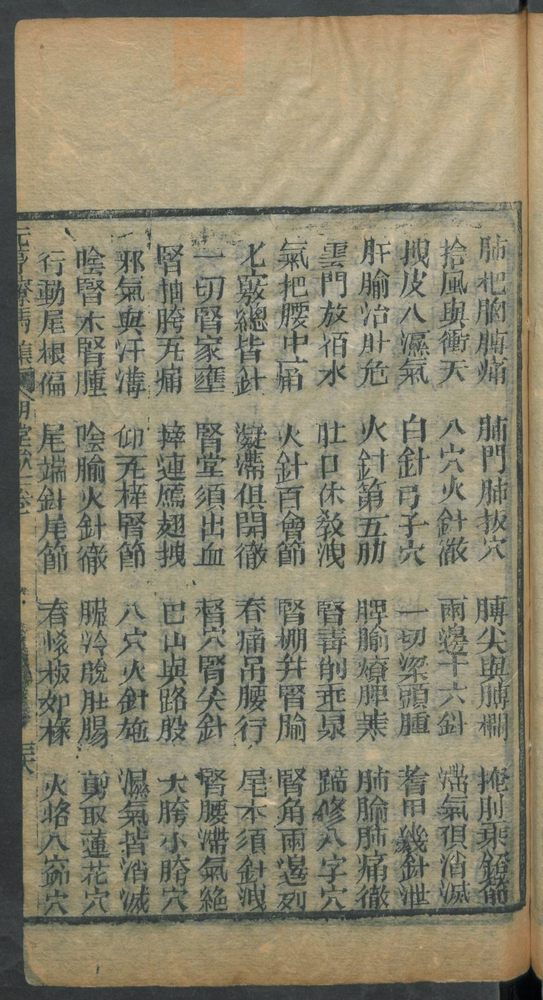 肺把胸膊痛 肺門肺扳穴 膊尖與膊欄 掩肘乘鐙節
拾風與衝天 八穴火針徹 兩邊十六針 滯氣俱消滅
拽皮八濕氣 白針弓子穴 一切梁頭腫 着甲幾針泄
肝腧治肝危 火針第五肋 脾腧療脾黃 肺腧肺痛徹
雲門放宿水 肚口休教洩 腎毒削垂泉 蹄修八字穴
氣把腰中痛 火針百會節 腎棚并腎腧 腎角兩邊列
七竅總皆針 凝滯俱開徹 脊痛吊腰行 尾本須針洩
一切腎家壅 腎堂須出血 督穴腎尖針 腎腰滯氣絶
腎抽胯瓦痛 摔連鴈翅拽 巴山與路股 大胯小胯穴
邪氣與汗溝 仰瓦梓腎節 八穴火針施 濕氣皆消滅
陰腎木腎腫 陰腧火針徹 臟冷脫肚腸 剪取蓮花穴
行動尾根偏 尾端針尾節 脊悷板如椽 火烙八窌穴
元亨療馬集 明堂 卷一